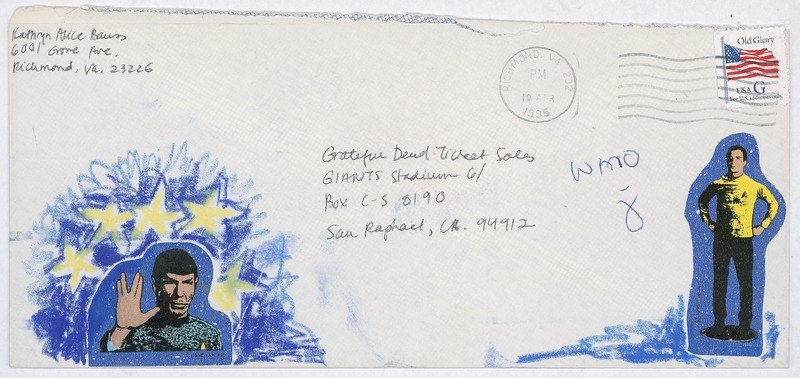 Kathryn Alice Bauss
6001 Grove Ave.
Richmond, Va. 23226
RICHMOND, VA 232
PM
19 APR
1995
Old Glory
USA G
For U.S. addresses only
Grateful Dead Ticket Sales
GIANTS Stadium 6/
Box C-S 8190
San Raphael, CA. 94912